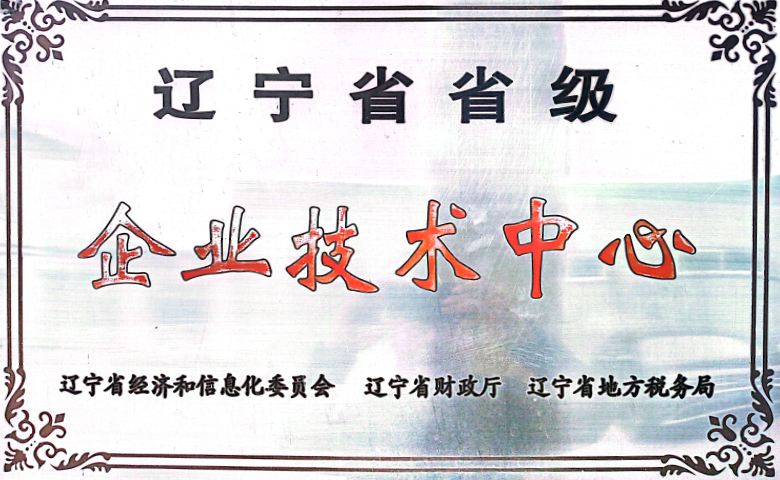 辽宁省省级
企业技术中心
辽宁省经济和信息化委员会 辽宁省财政厅 辽宁省地方税务局